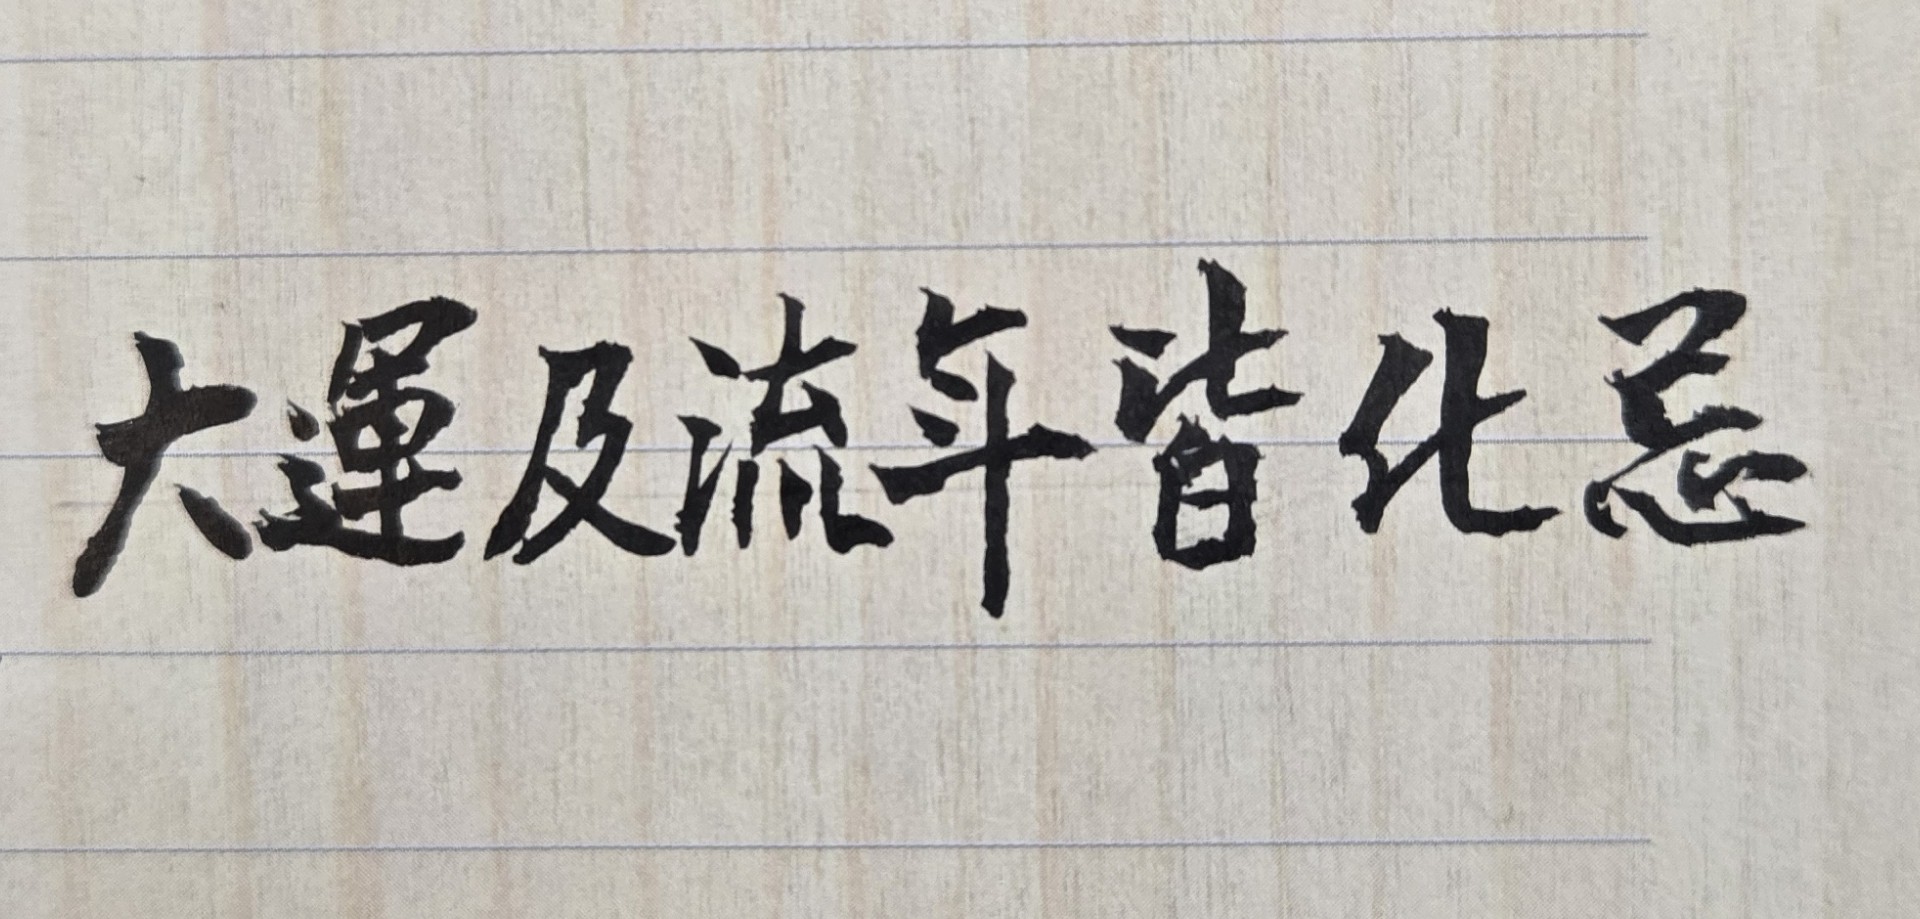 大運及流年皆化忌